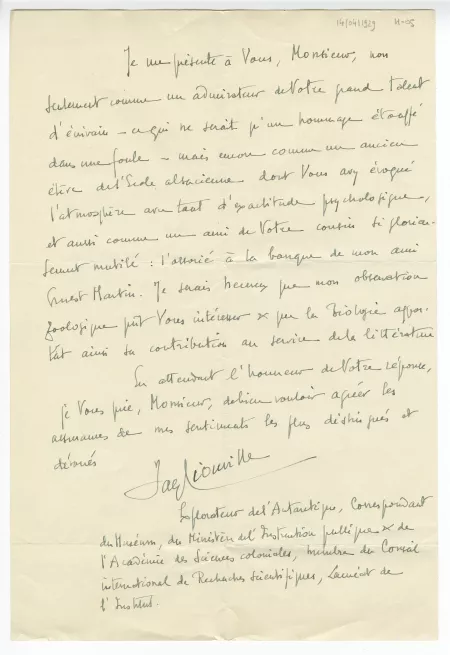 14/04/1929 H-05
Je me présente à Vous, Monsieur, non
seulement comme un admirateur de Votre grand talent
d'écrivain – ce qui ne serait qu'un hommage étouffé
dans une foule – mais encore comme un ancien
élève de l'Ecole alsacienne dont Vous avez évoqué
l'atmosphère avec tant d'exactitude psychologique,
et aussi comme un ami de Votre cousin si glorieu-
sement mutilé : l'associé à la banque de mon ami
Ernest Martin. Je serais heureux que mon observation
zoologique pût Vous intéresser & que la Biologie appor-
tât ainsi sa contribution au service de la littérature
En attendant l'honneur de Votre réponse,
je Vous prie, Monsieur, de bien vouloir agréer les
assurances de mes sentiments les plus distingués et
dévoués
Jacq Liouville
Explorateur de l'Antarctique, Correspondant
du Muséum, du Ministère de l'Instruction publique & de
l'Académie des Sciences coloniales, membre du Conseil
international de Recherches Scientifiques, Lauréat de
l'Institut.